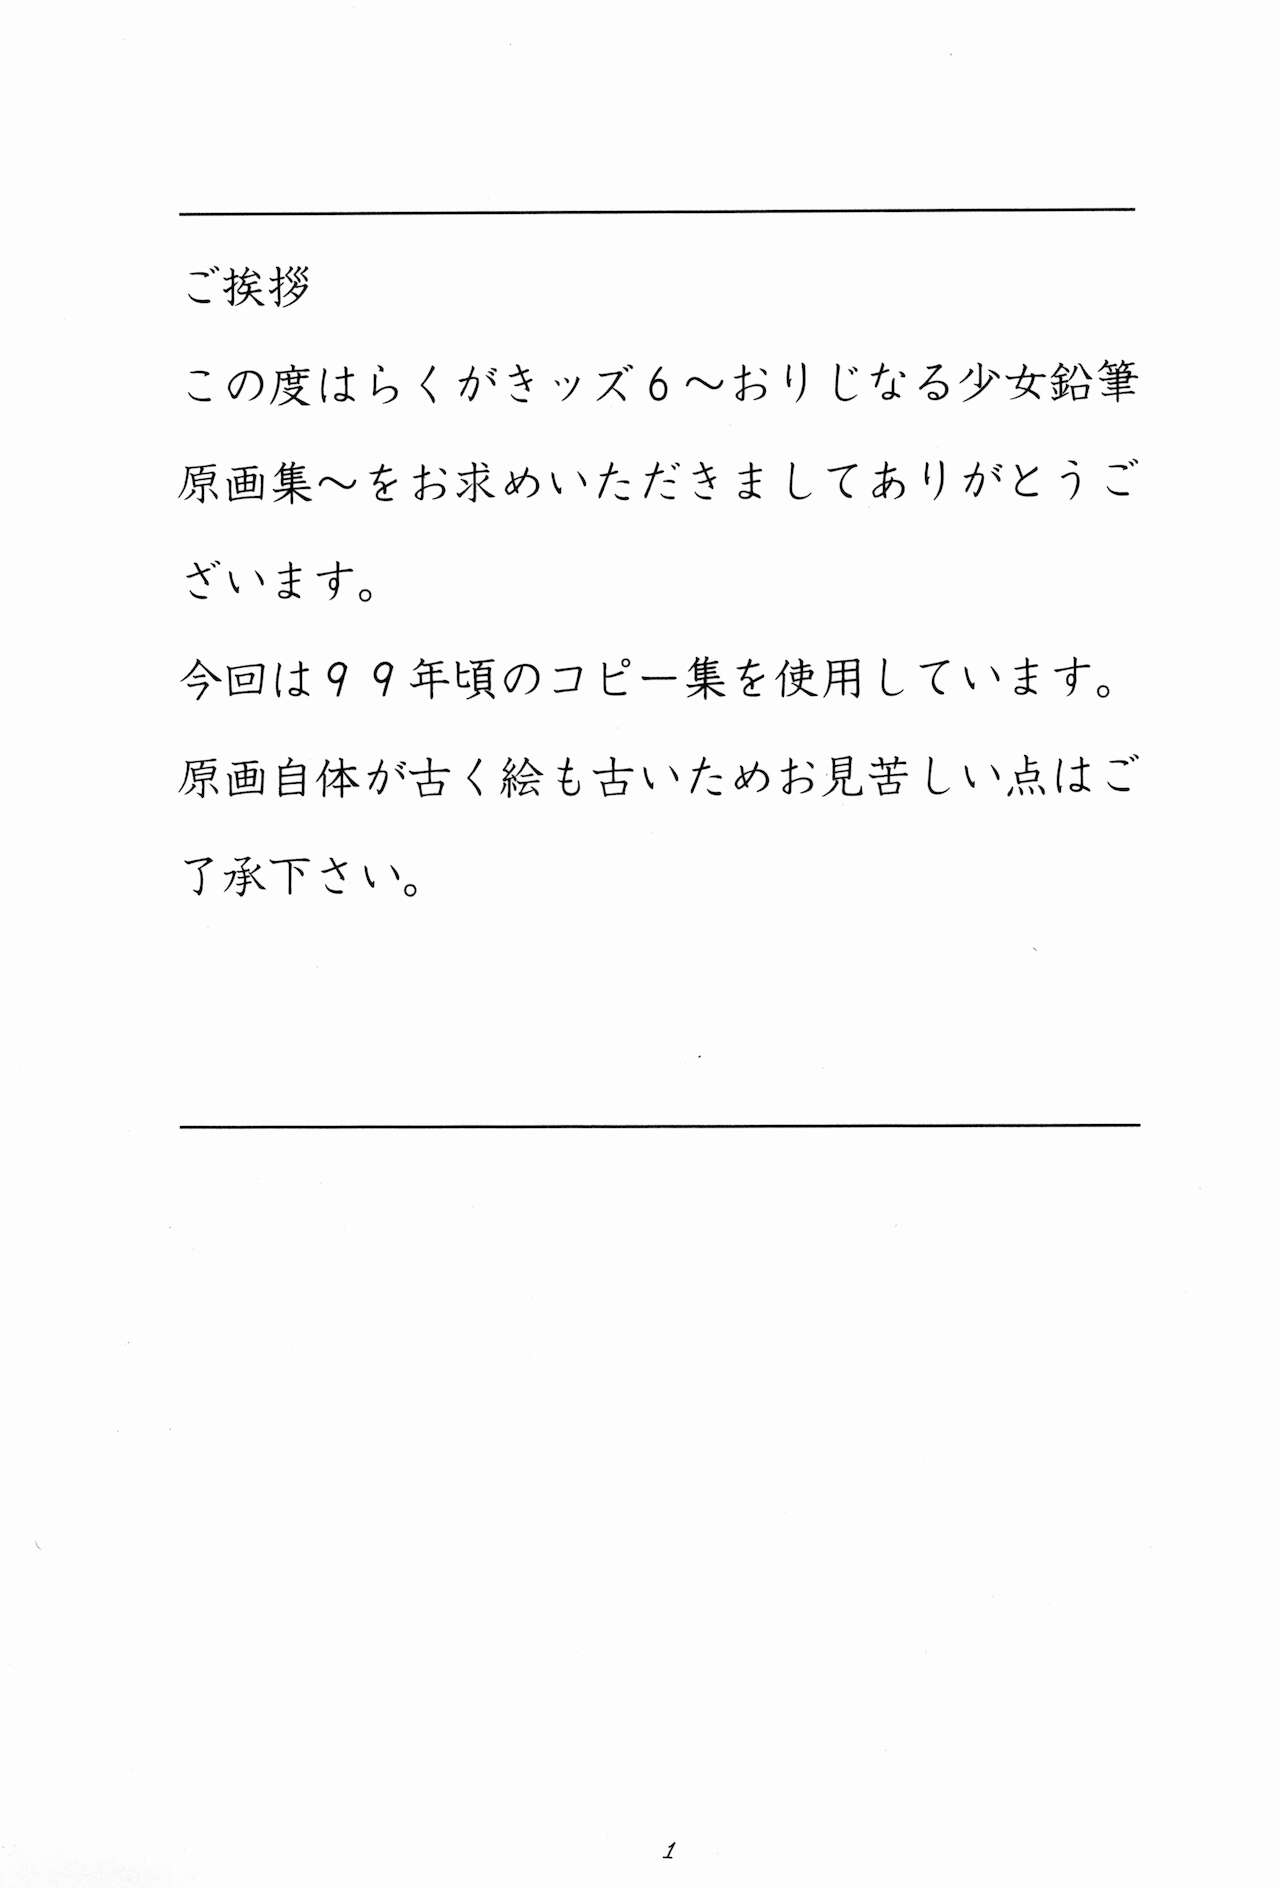 ご挨拶
この度はらくがきッズ６～おりじなる少女鉛筆
原画集～をお求めいただきましてありがとうご
ざいます。
今回は９９年頃のコピー集を使用しています。
原画自体が古く絵も古いためお見苦しい点はご
了承下さい。
1